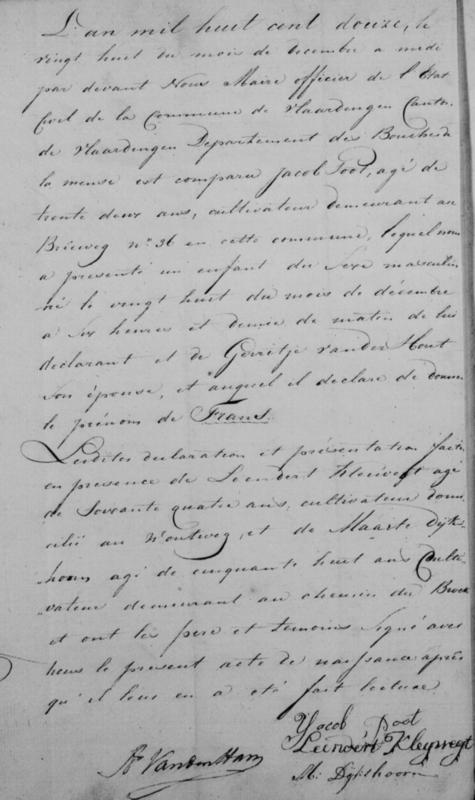 L'an mil huit cent douze, le
vingt huit du mois de decembre a midi
par devant Nous Maire officier de l'Etat
Civil de la Commune de Vlaardingen Canton
de Vlaardingen Departement des Bouches de
la meuse est comparu Jacob Poot, agé de
trente deux ans, cultivateur demeurant au
n° 36 en cette commune, lequel nous
a presenté un enfant du Sexe masculin
né le vingt huit du mois de décembre
a six heures et demie de matin de lui
declarant et de Gerritje van der Hout
son épouse, et auquel il declare de donner
le prénoms de Frans.
Lesdites declaration et présentation faites
en presence de Leendert Kleiwegt agé
de Soixante quatre ans, cultivateur domi
cilié au et de Maarte Dijks
hoorn agé de cinquante huit ans Culti
vateur demeurant au chemin du Broek
et ont les pere et temoins signé avec
nous le present acte de naissance après
qu'il leur en a été fait lecture
Yacob Poot
Leendert Kleywegt
A. Van den Ham
M: Dijkshoorn